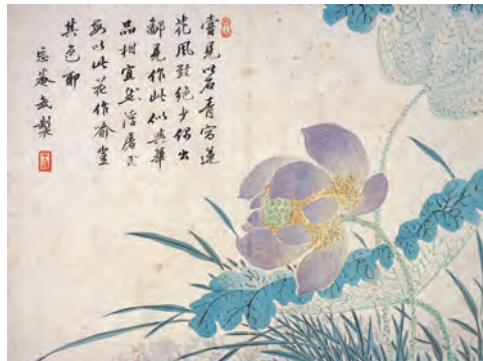 嘗見以石青寫蓮
花風致絕少偶出
鄙見作此似與華
品相宜然浮屠氏
每以此花作喻豈
其色耶
忘菴戲製